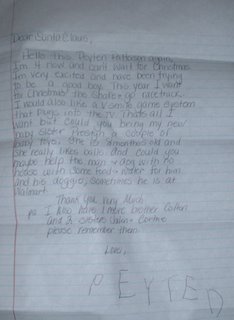 Dear Santa Claus,
Hello. This Peyton again.
Im 4 now and can't wait for Christmas.
Im very excited and have been trying
to be a good boy. This year I want
for Christmas the Shake + go racetrack
I would also like a V-smile game system
that plugs into the TV. thats all I
want but could you bring my new
baby sister Preslyn a couple of
baby toys. She is months old and
she really likes balls. and could you
maybe help the man + dog with no
house with some food + water for him
and his doggie, sometimes he is at
Walmart.
Thank you Very Much
ps I Also have 1 more brother Colton
and 2 sisters +
please remember them.
Love,
PEYTED